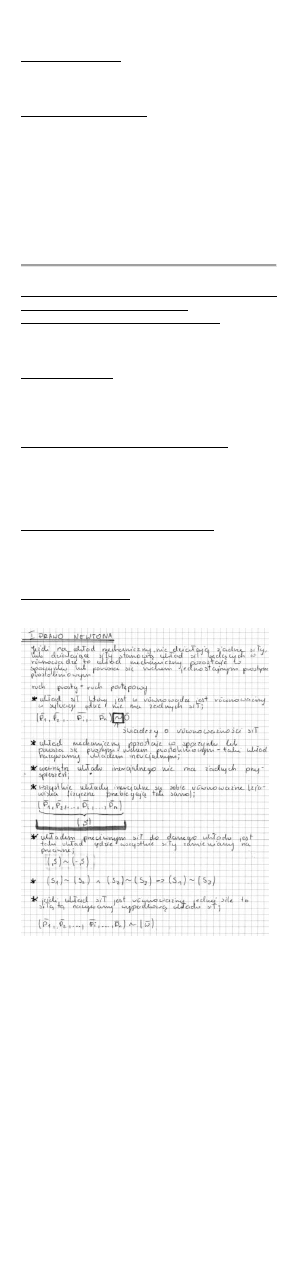 I PRAWO NEWTONA
Jeżeli na układ mechaniczny nie działają żadne siły,
lub działające siły stanowią układ sił będących w
równowadze to układ mechaniczny pozostaje w
spoczynku lub porusza się ruchem jednostajnym postęp.
prostoliniowym
ruch prosty + ruch postępowy
* układ sił który jest w równowadze jest równoważny
w sytuacji gdzie nie ma żadnych sił;
(P̄₁, P̄₂, ... P̄ᵢ, P̄ₙ) ~ 0
świadczy o równoważności sił
* układ mechaniczny pozostaje w spoczynku lub
porusza się ruchem prostoliniowym - taki układ
nazywamy układem inercjalnym;
* wewnątrz układu inercjalnego nie ma żadnych przy-
spieszeń;
* wszystkie układy inercjalne są sobie równoważne (zja-
wiska fizyczne przebiegają tak samo);
(P̄₁, P̄₂, ..., P̄ᵢ, ..., P̄ₙ)
(S)
* układem przeciwnym sił do danego układu jest
taki układ gdzie wszystkie siły zamieniamy na
przeciwne;
(S) ~ (-S)
* (S₁) ~ (S₂) ∧ (S₂) ~ (S₃) => (S₁) ~ (S₃)
* jeżeli układ sił jest równoważny jednej sile to
siłę tą nazywamy wypadkową układu sił;
(P̄₁, P̄₂, ..., P̄ᵢ, ..., P̄ₙ) ~ (W̄)